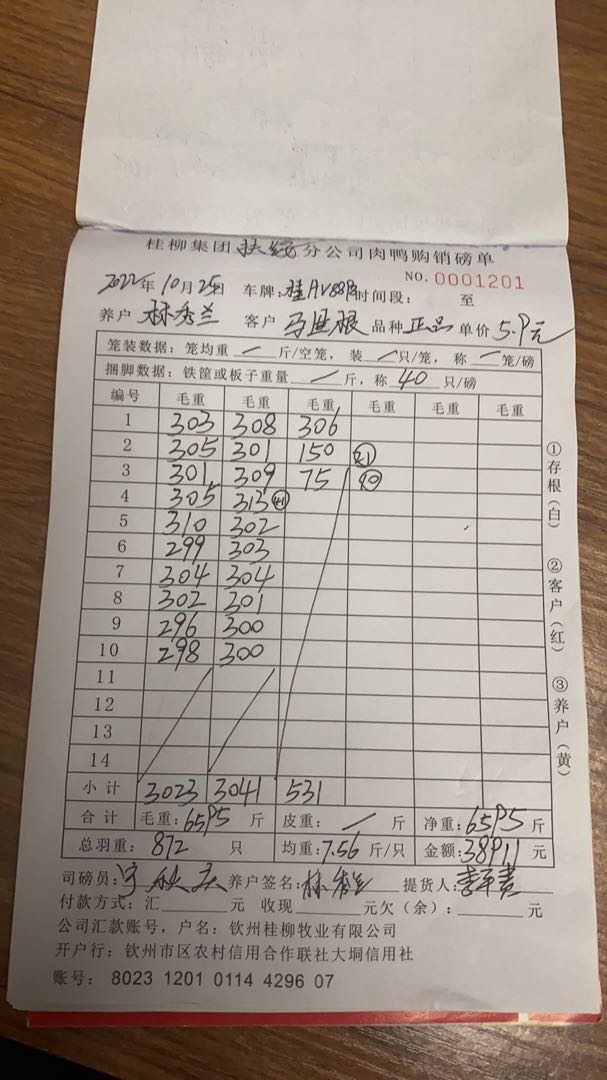 桂柳集团扶绥分公司肉鸭购销磅单
NO. 0001201
2022年10月25日 车牌: 时间段: 至
养户 林秀兰 客户 品种 正品 单价 5.9元
笼装数据:笼均重 / 斤/空笼,装 / 只/笼,称 / 笼/磅
捆脚数据:铁筐或板子重量 / 斤,称 40 只/磅
编号 毛重 毛重 毛重 毛重 毛重 毛重
1 303 308 306
2 305 301 150 21
3 301 309 75 10
4 305 313 41
5 310 302
6 299 303
7 304 304
8 302 301
9 296 300
10 298 300
11
12
13
14
小计 3023 3041 531
合计 毛重:6595 斤 皮重: / 斤 净重:6595 斤
总羽重: 872 只 均重:7.56 斤/只 金额:38911 元
司磅员: 养户签名:林秀兰 提货人:
付款方式:汇 元 收现 元欠(余): 元
公司汇款账号,户名:钦州桂柳牧业有限公司
开户行:钦州市区农村信用合作联社大垌信用社
账号: 8023 1201 0114 4296 07
①存根(白) ②客户(红) ③养户(黄)